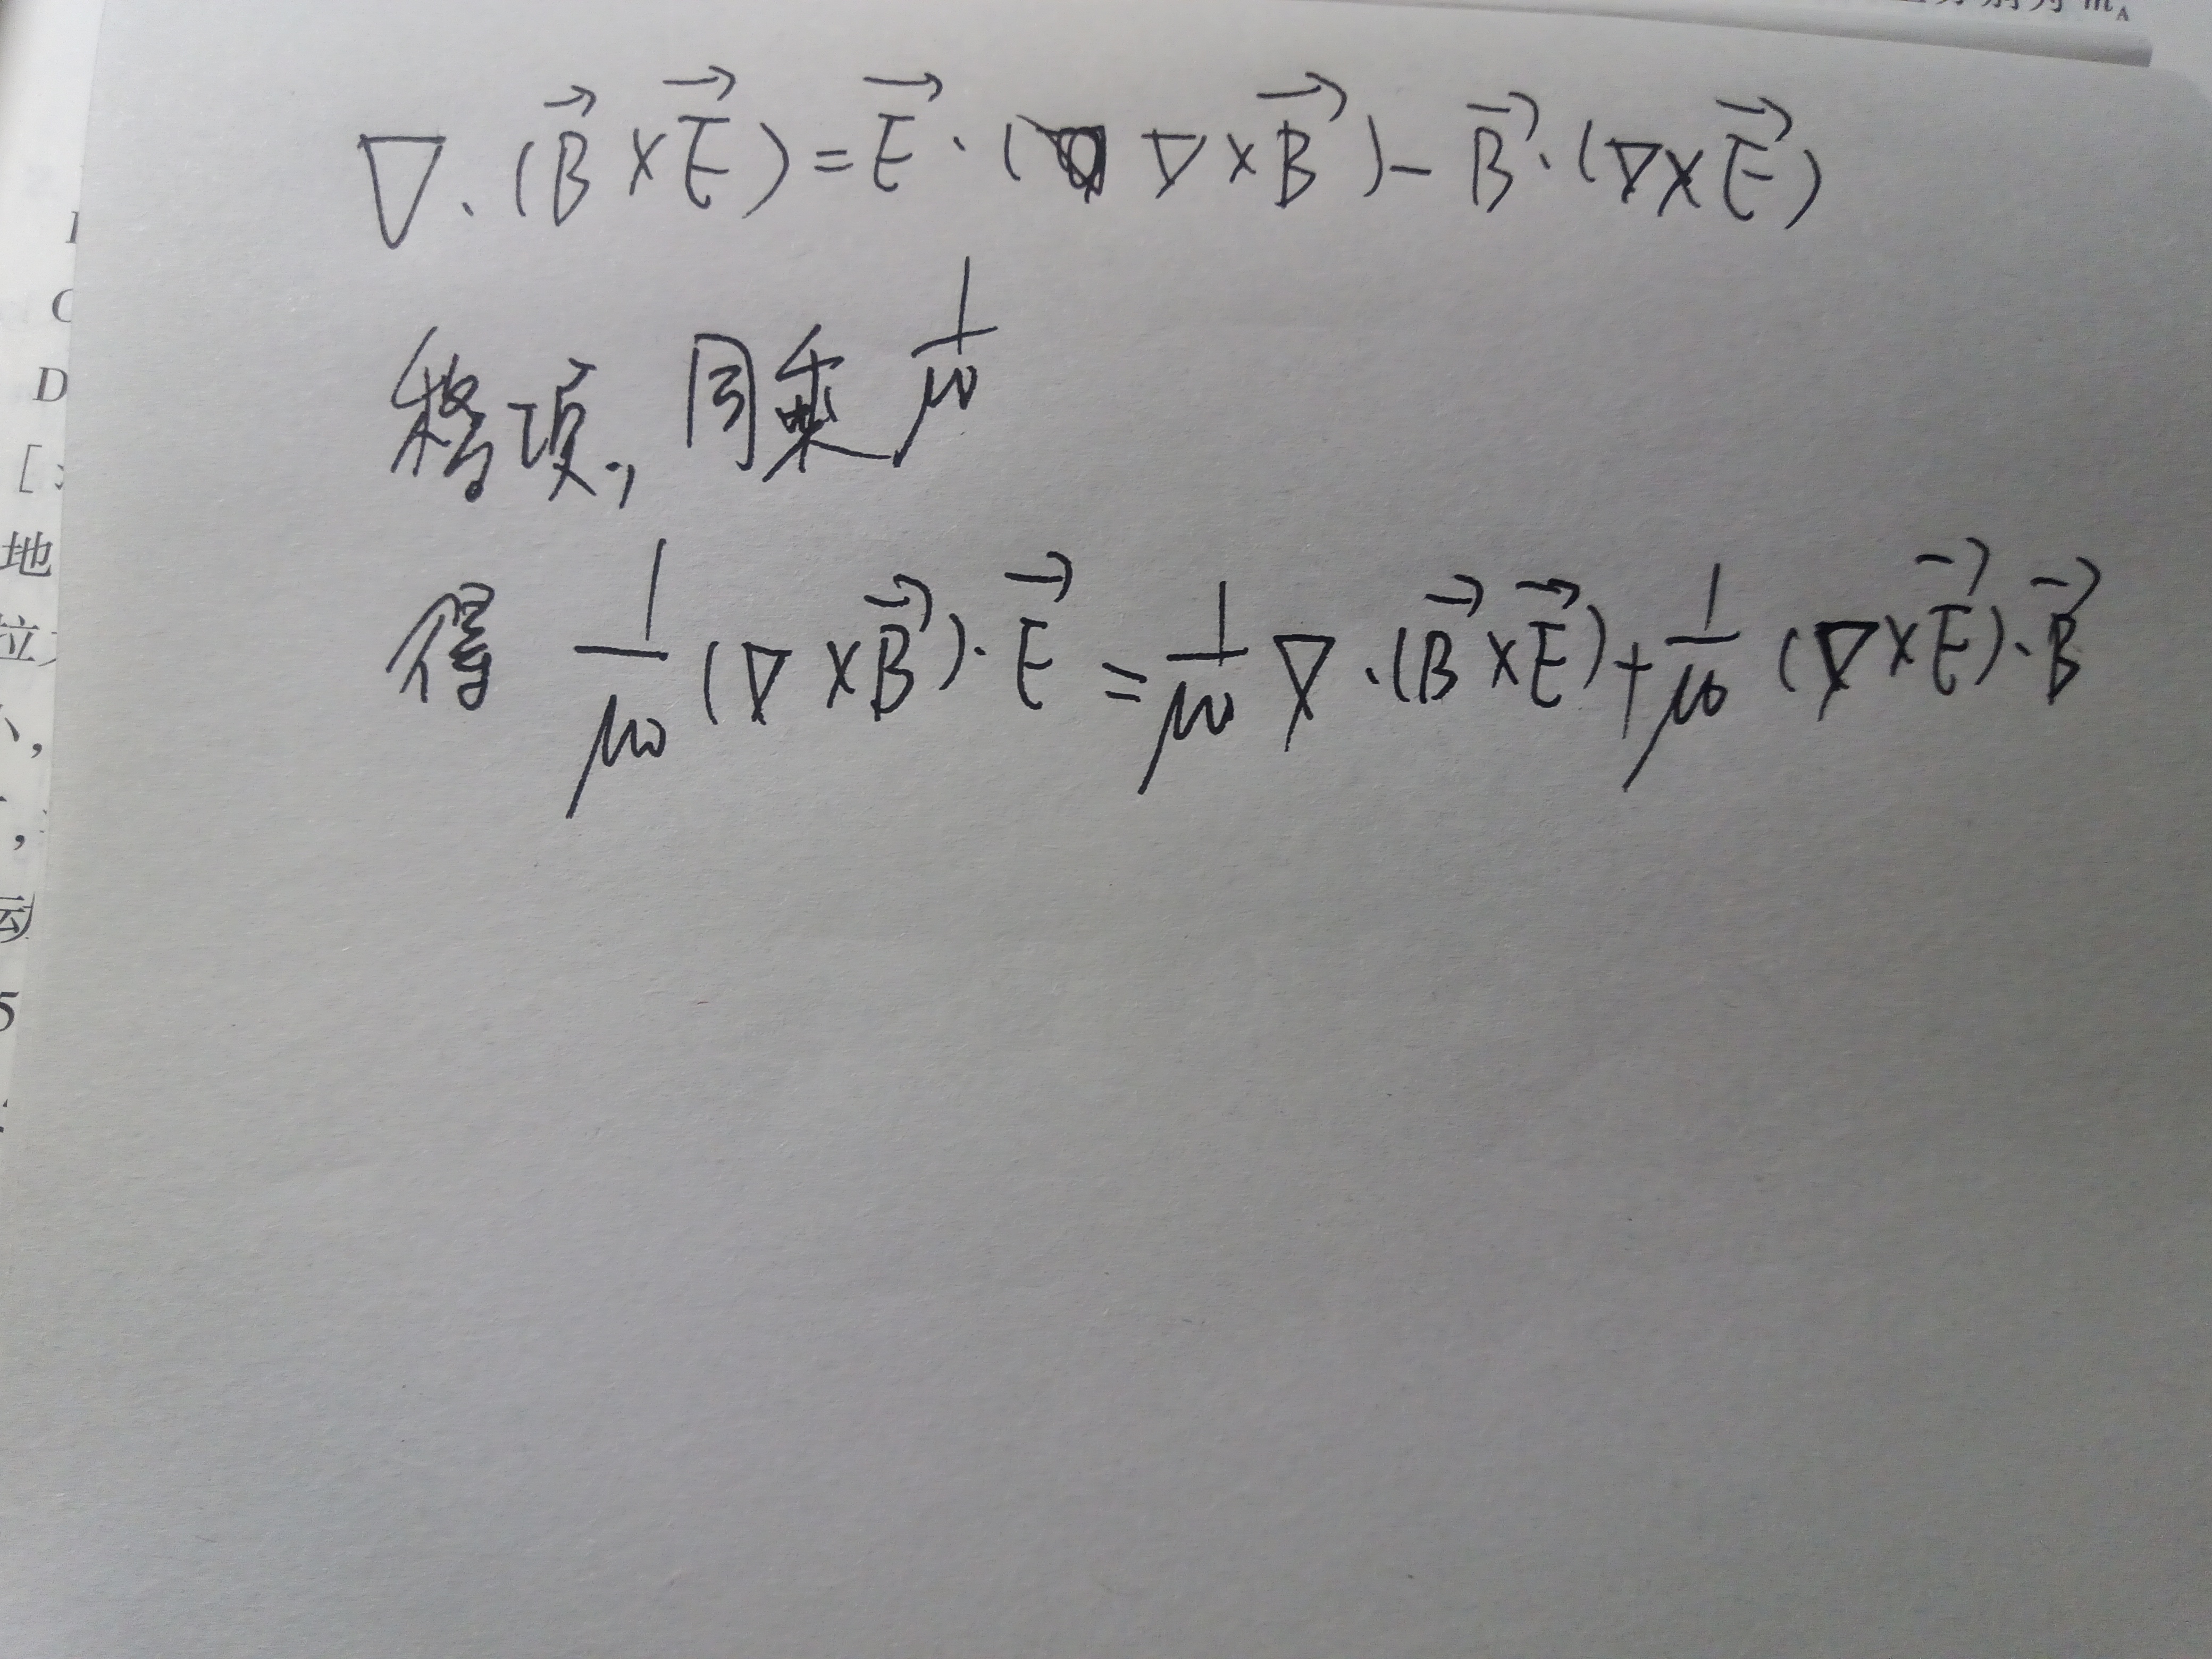 m_A
∇·(B⃗×E⃗)=E⃗·(∇×B⃗)-B⃗·(∇×E⃗)
移项,同乘1/μ₀
得 1/μ₀(∇×B⃗)·E⃗=1/μ₀∇·(B⃗×E⃗)+1/μ₀(∇×E⃗)·B⃗
D
[
地
5